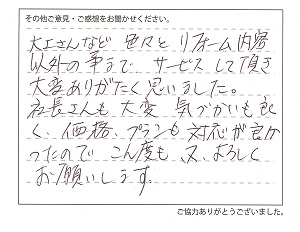 その他ご意見・ご感想をお聞かせください。
大工さんなど 色々と リフォーム内容
以外の事まで サービス して頂き
大変ありがたく思いました。
社長さんも 大変 気づかいも良
く、価格、プランも 対応が良か
ったので こん度も、又、よろしく
お願いします。
ご協力ありがとうございました。